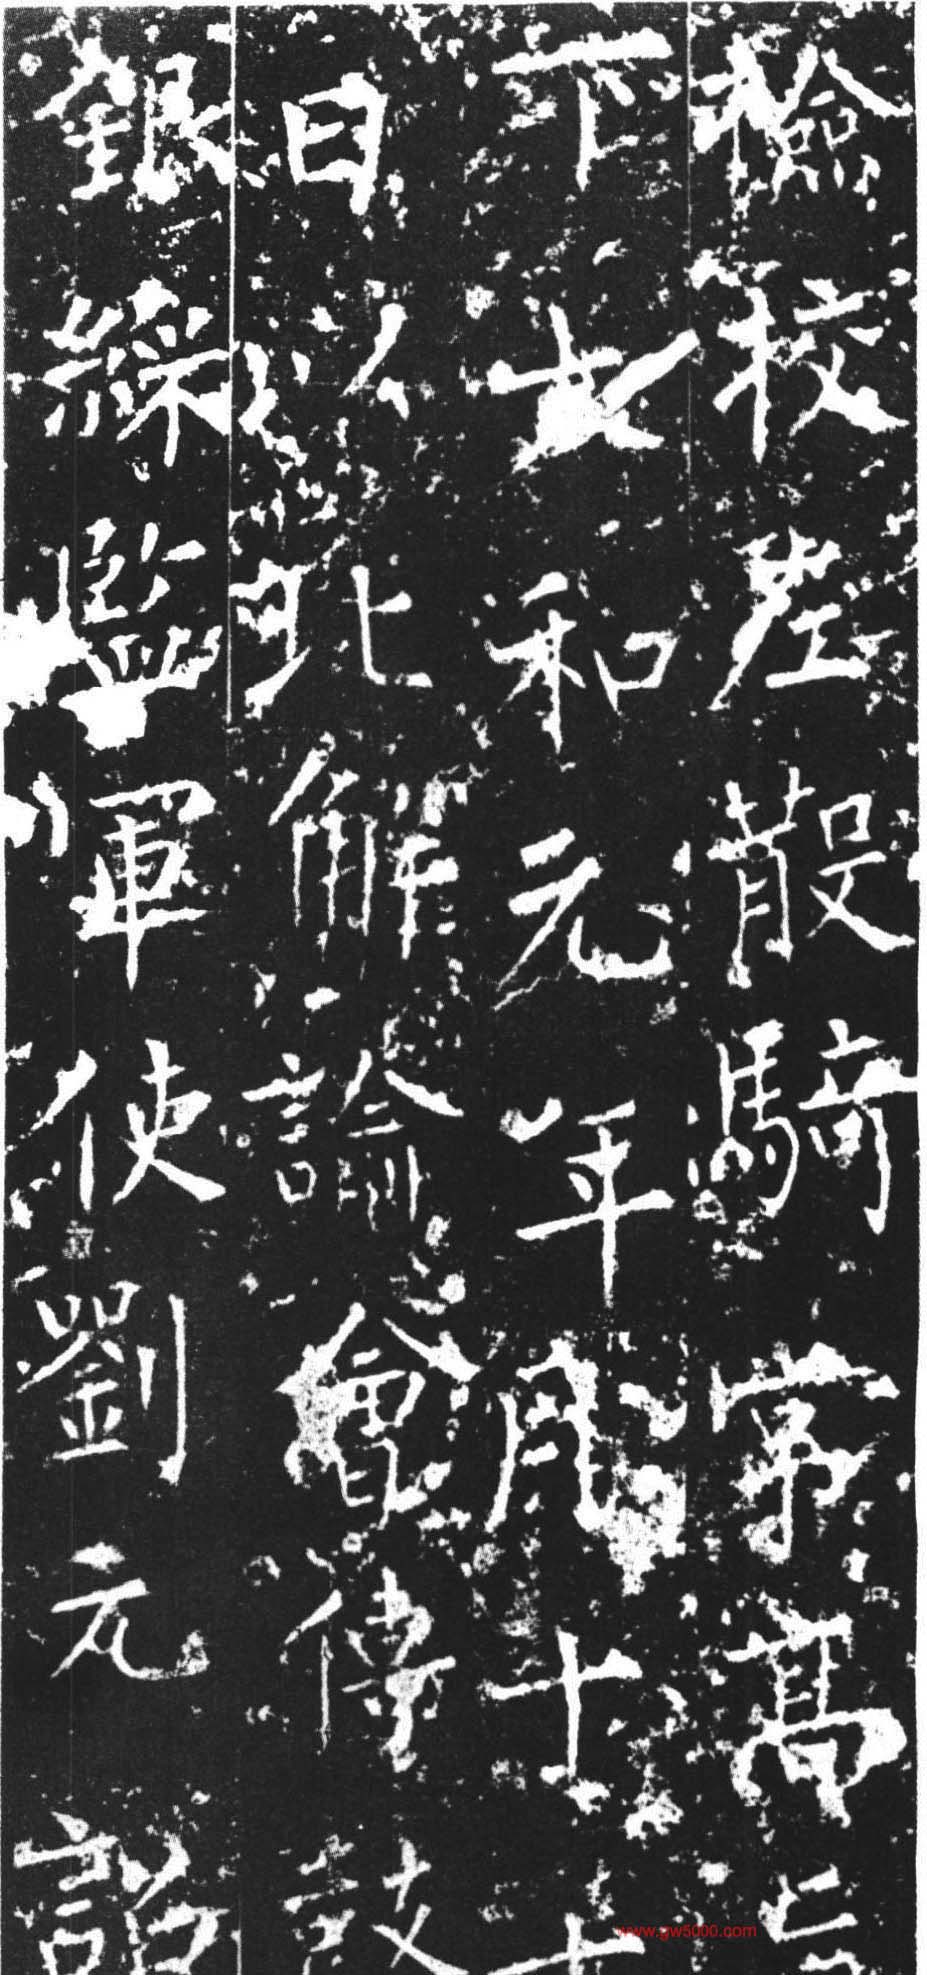 檢校左散騎常高
下大和元年月十十
日以此解諭會傳鼓
銀綵監軍使劉元詔
www.gw5000.com